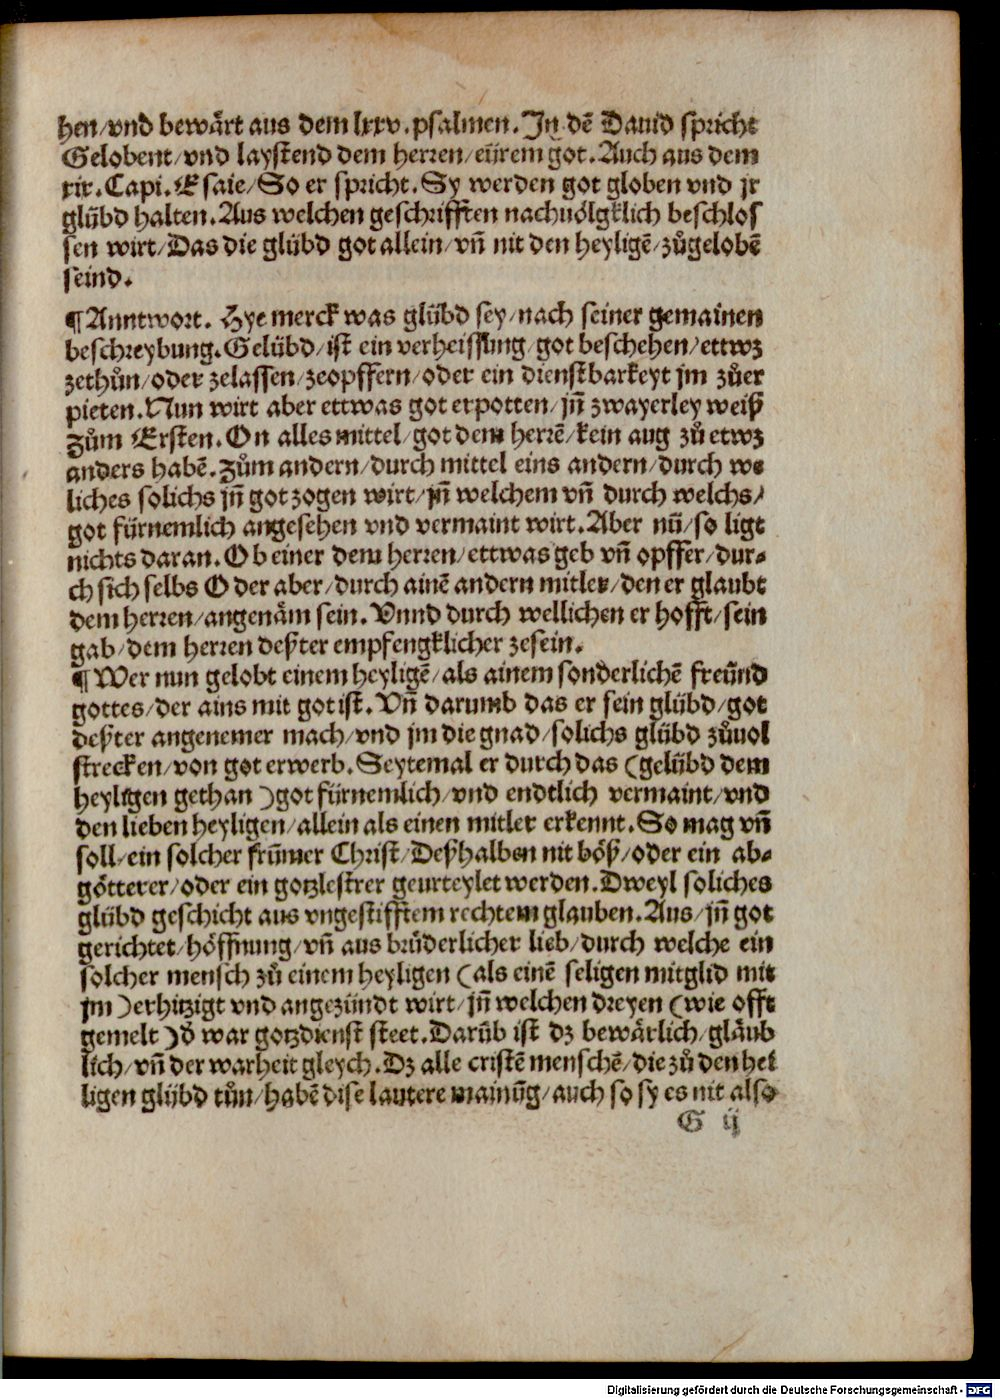 hen/vnd bewårt aus dem lxxv.psalmen.In dē Dauid spricht
Gelobent/vnd laystend dem herren/eürem got.Auch aus dem
xix.Capi.Esaie/So er spricht.Sy werden got globen vnd jr
glübd halten.Aus welchen geschrifften nachuölgklich beschlos
sen wirt/Das die glübd got allein/vñ nit den heyligē/zůgelobē
seind.
¶Anntwort. Hye merck was glübd sey/nach seiner gemainen
beschreybung.Gelübd/ist ein verheissung/got beschehen/ettwz
zethůn/oder zelassen/zeopffern/oder ein dienstbarkeyt jm zůer
pieten.Nun wirt aber ettwas got erpotten/jñ zwayerley weiß
Zům Ersten.On alles mittel/got dem herrē/kein aug zů etwz
anders habē.Zům andern/durch mittel eins andern/durch we
liches solichs jñ got zogen wirt/jñ welchem vñ durch welchs/
got fürnemlich angesehen vnd vermaint wirt.Aber nū/so ligt
nichts daran.Ob einer dem herren/ettwas geb vñ opffer/dur⸗
ch sich selbs Oder aber/durch ainē andern mitler/den er glaubt
dem herren/angenäm sein. Vnnd durch wellichen er hofft/sein
gab/dem herren deßter empfengklicher zesein.
¶Wer nun gelobt einem heyligē/als ainem sonderlichē freünd
gottes/der ains mit got ist. Vñ darumb das er sein glübd/got
deßter angenemer mach/vnd jm die gnad/solichs glübd zůuol
strecken/von got erwerb.Seytemal er durch das (gelübd dem
heyligen gethan )got fürnemlich/vnd endtlich vermaint/vnd
den lieben heyligen/allein als einen mitler erkennt.So mag vñ
soll/ein solcher frūmer Christ/Deßhalben nit böß/oder ein ab⸗
götterer/oder ein gotzlestrer geurteylet werden.Dweyl soliches
glübd geschicht aus vngestifftem rechtem glauben.Aus/jñ got
gerichtet/höffnung/vñ aus brüderlicher lieb/durch welche ein
solcher mensch zů einem heyligen (als einē seligen mitglid mit
jm )erhitzigt vnd angezündt wirt/jñ welchen dreyen (wie offt
gemelt )ð war gotzdienst steet.Darūb ist dz bewärlich/gläub
lich/vñ der warheit gleych.Dz alle cristē menschē/die zů den hei
ligen glübd tůn/habē dise lautere mainūg/auch so sy es nit also
G ij
Digitalisierung gefördert durch die Deutsche Forschungsgemeinschaft - DFG